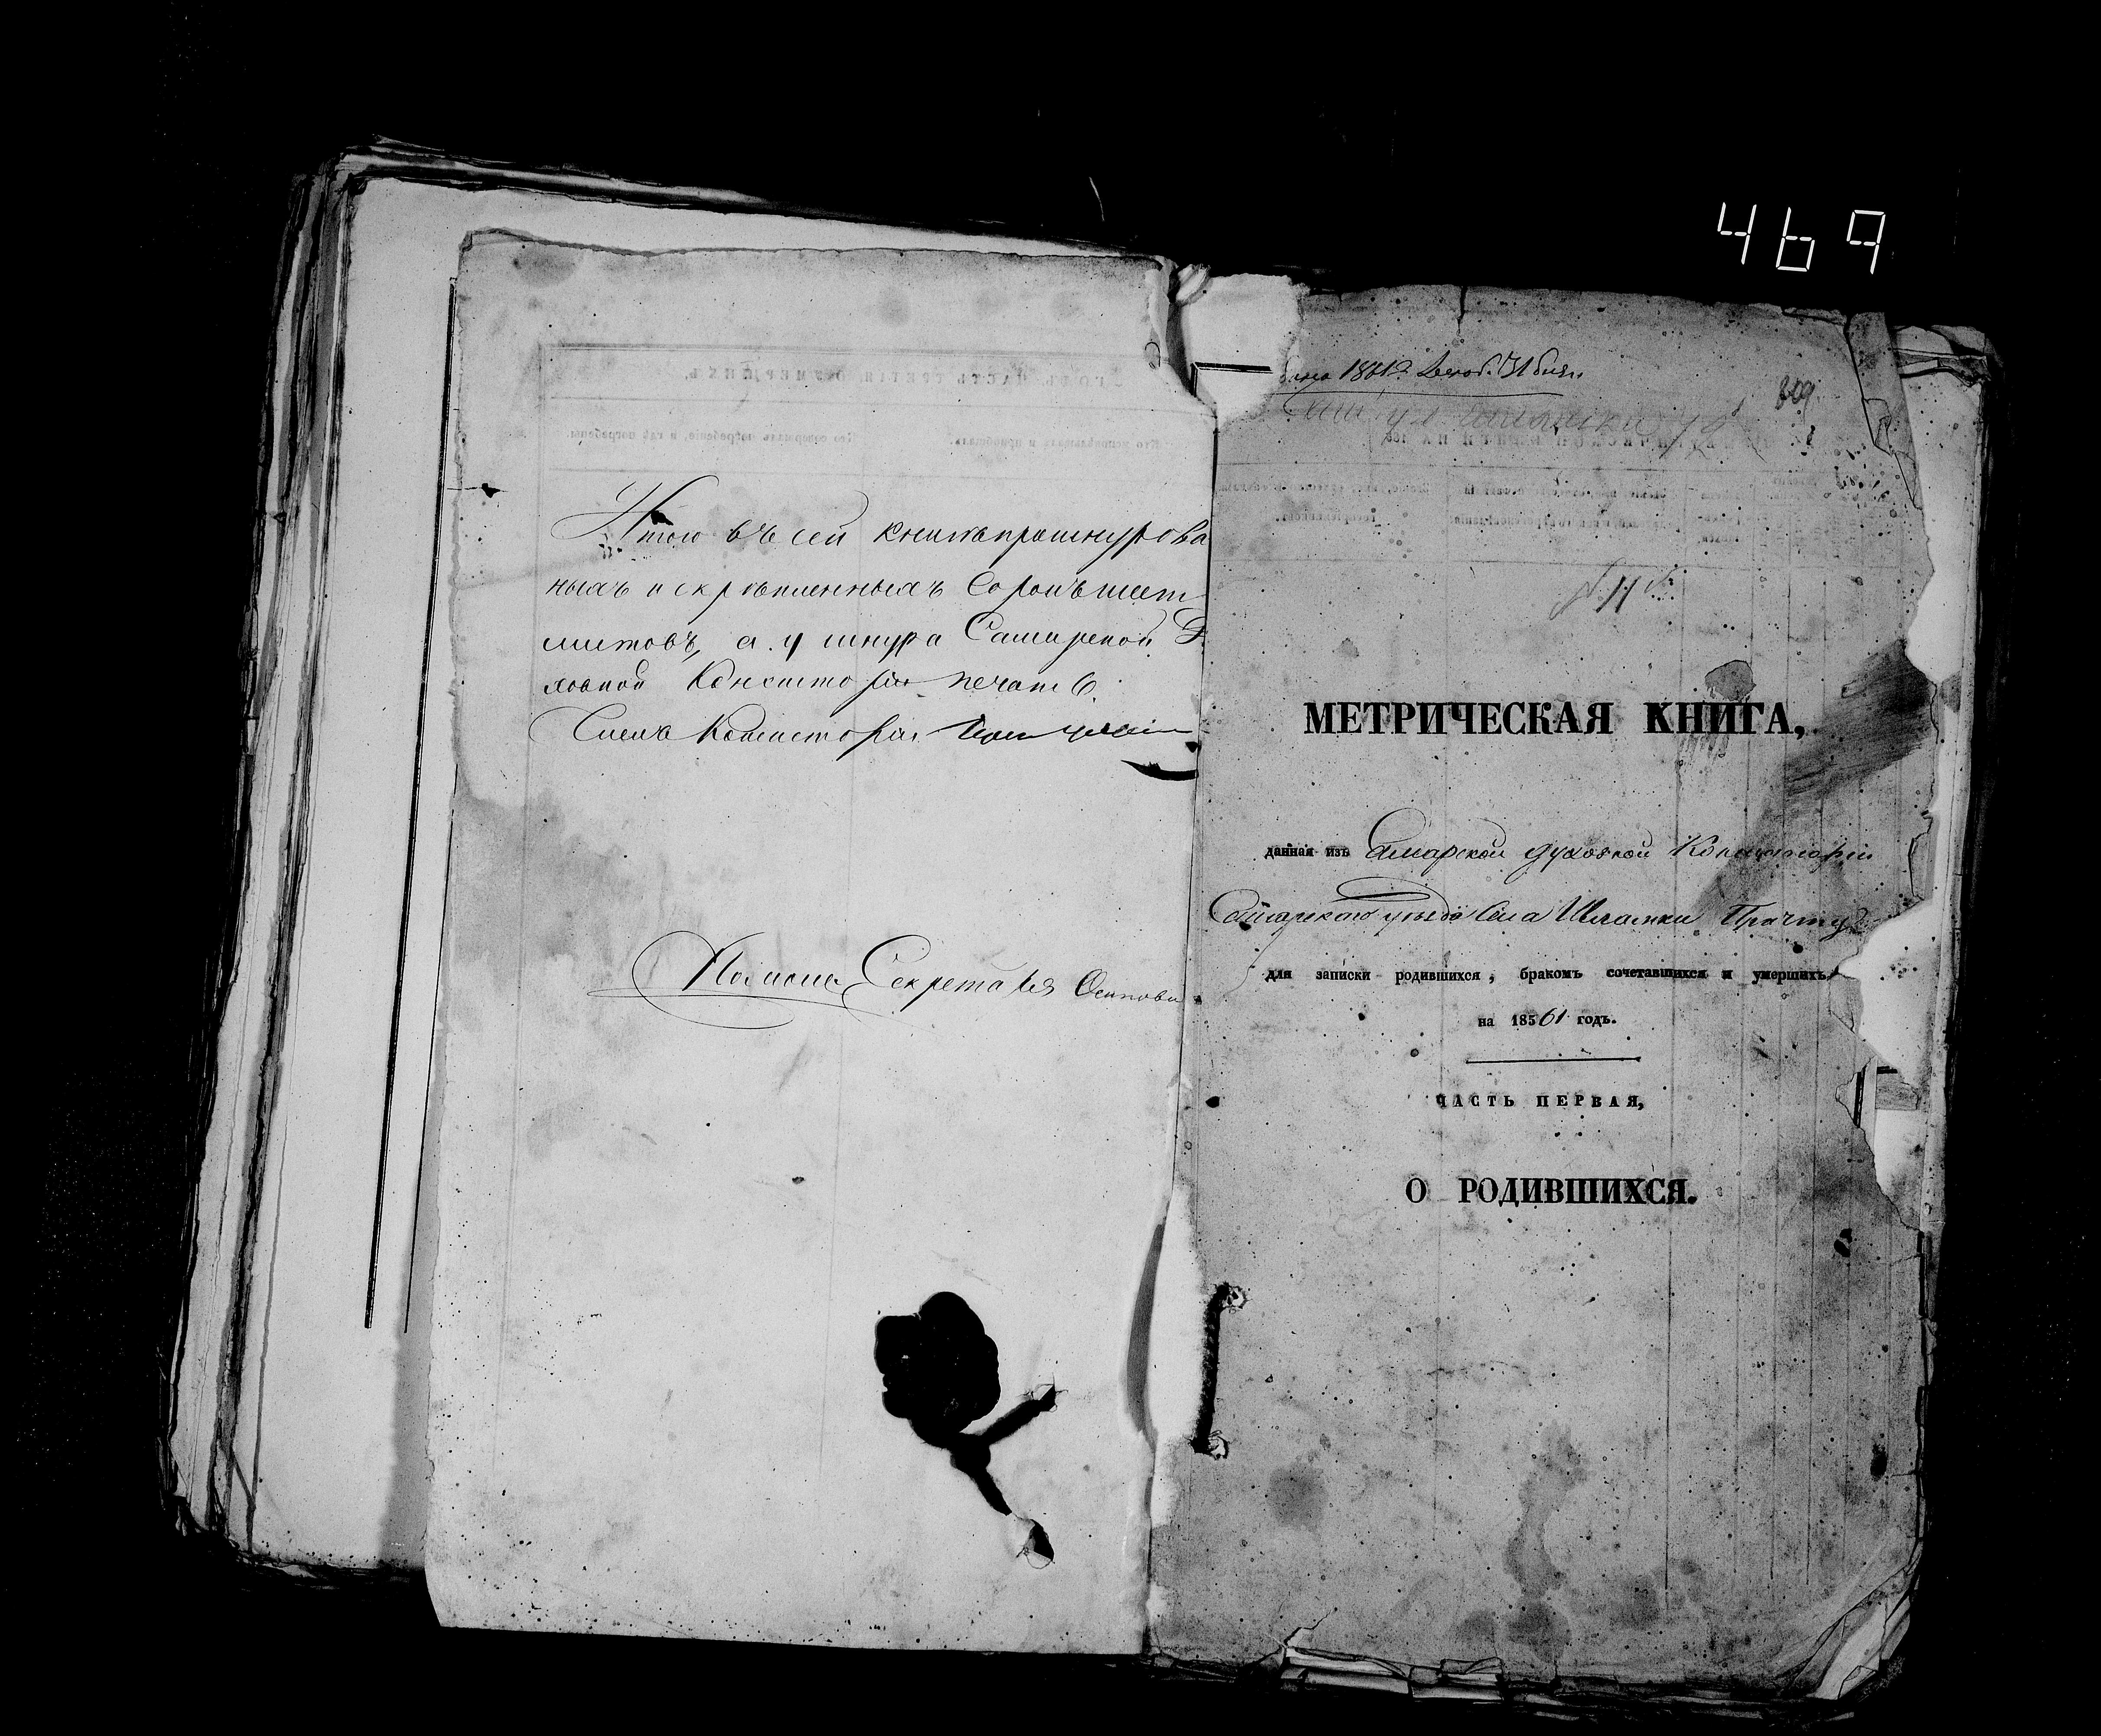 469
Итого въ сей книгѣ прошнурова
ныхъ и скрѣпленныхъ Сорокъ шест
листовъ, а у шнура Самарской Д
ховной Консисторіи печать.
Членъ Консисторіи
Секретаря Осиповъ
1861 Декаб. 31 дня
809
МЕТРИЧЕСКАЯ КНИГА,
данная изъ Самарской духовной Консисторіи
Самарскаго уѣзда Села Шламки Причту
для записки родившихся, бракомъ сочетавшихся и умершихъ
на 18561 годъ.
ЧАСТЬ ПЕРВАЯ,
О РОДИВШИХСЯ.